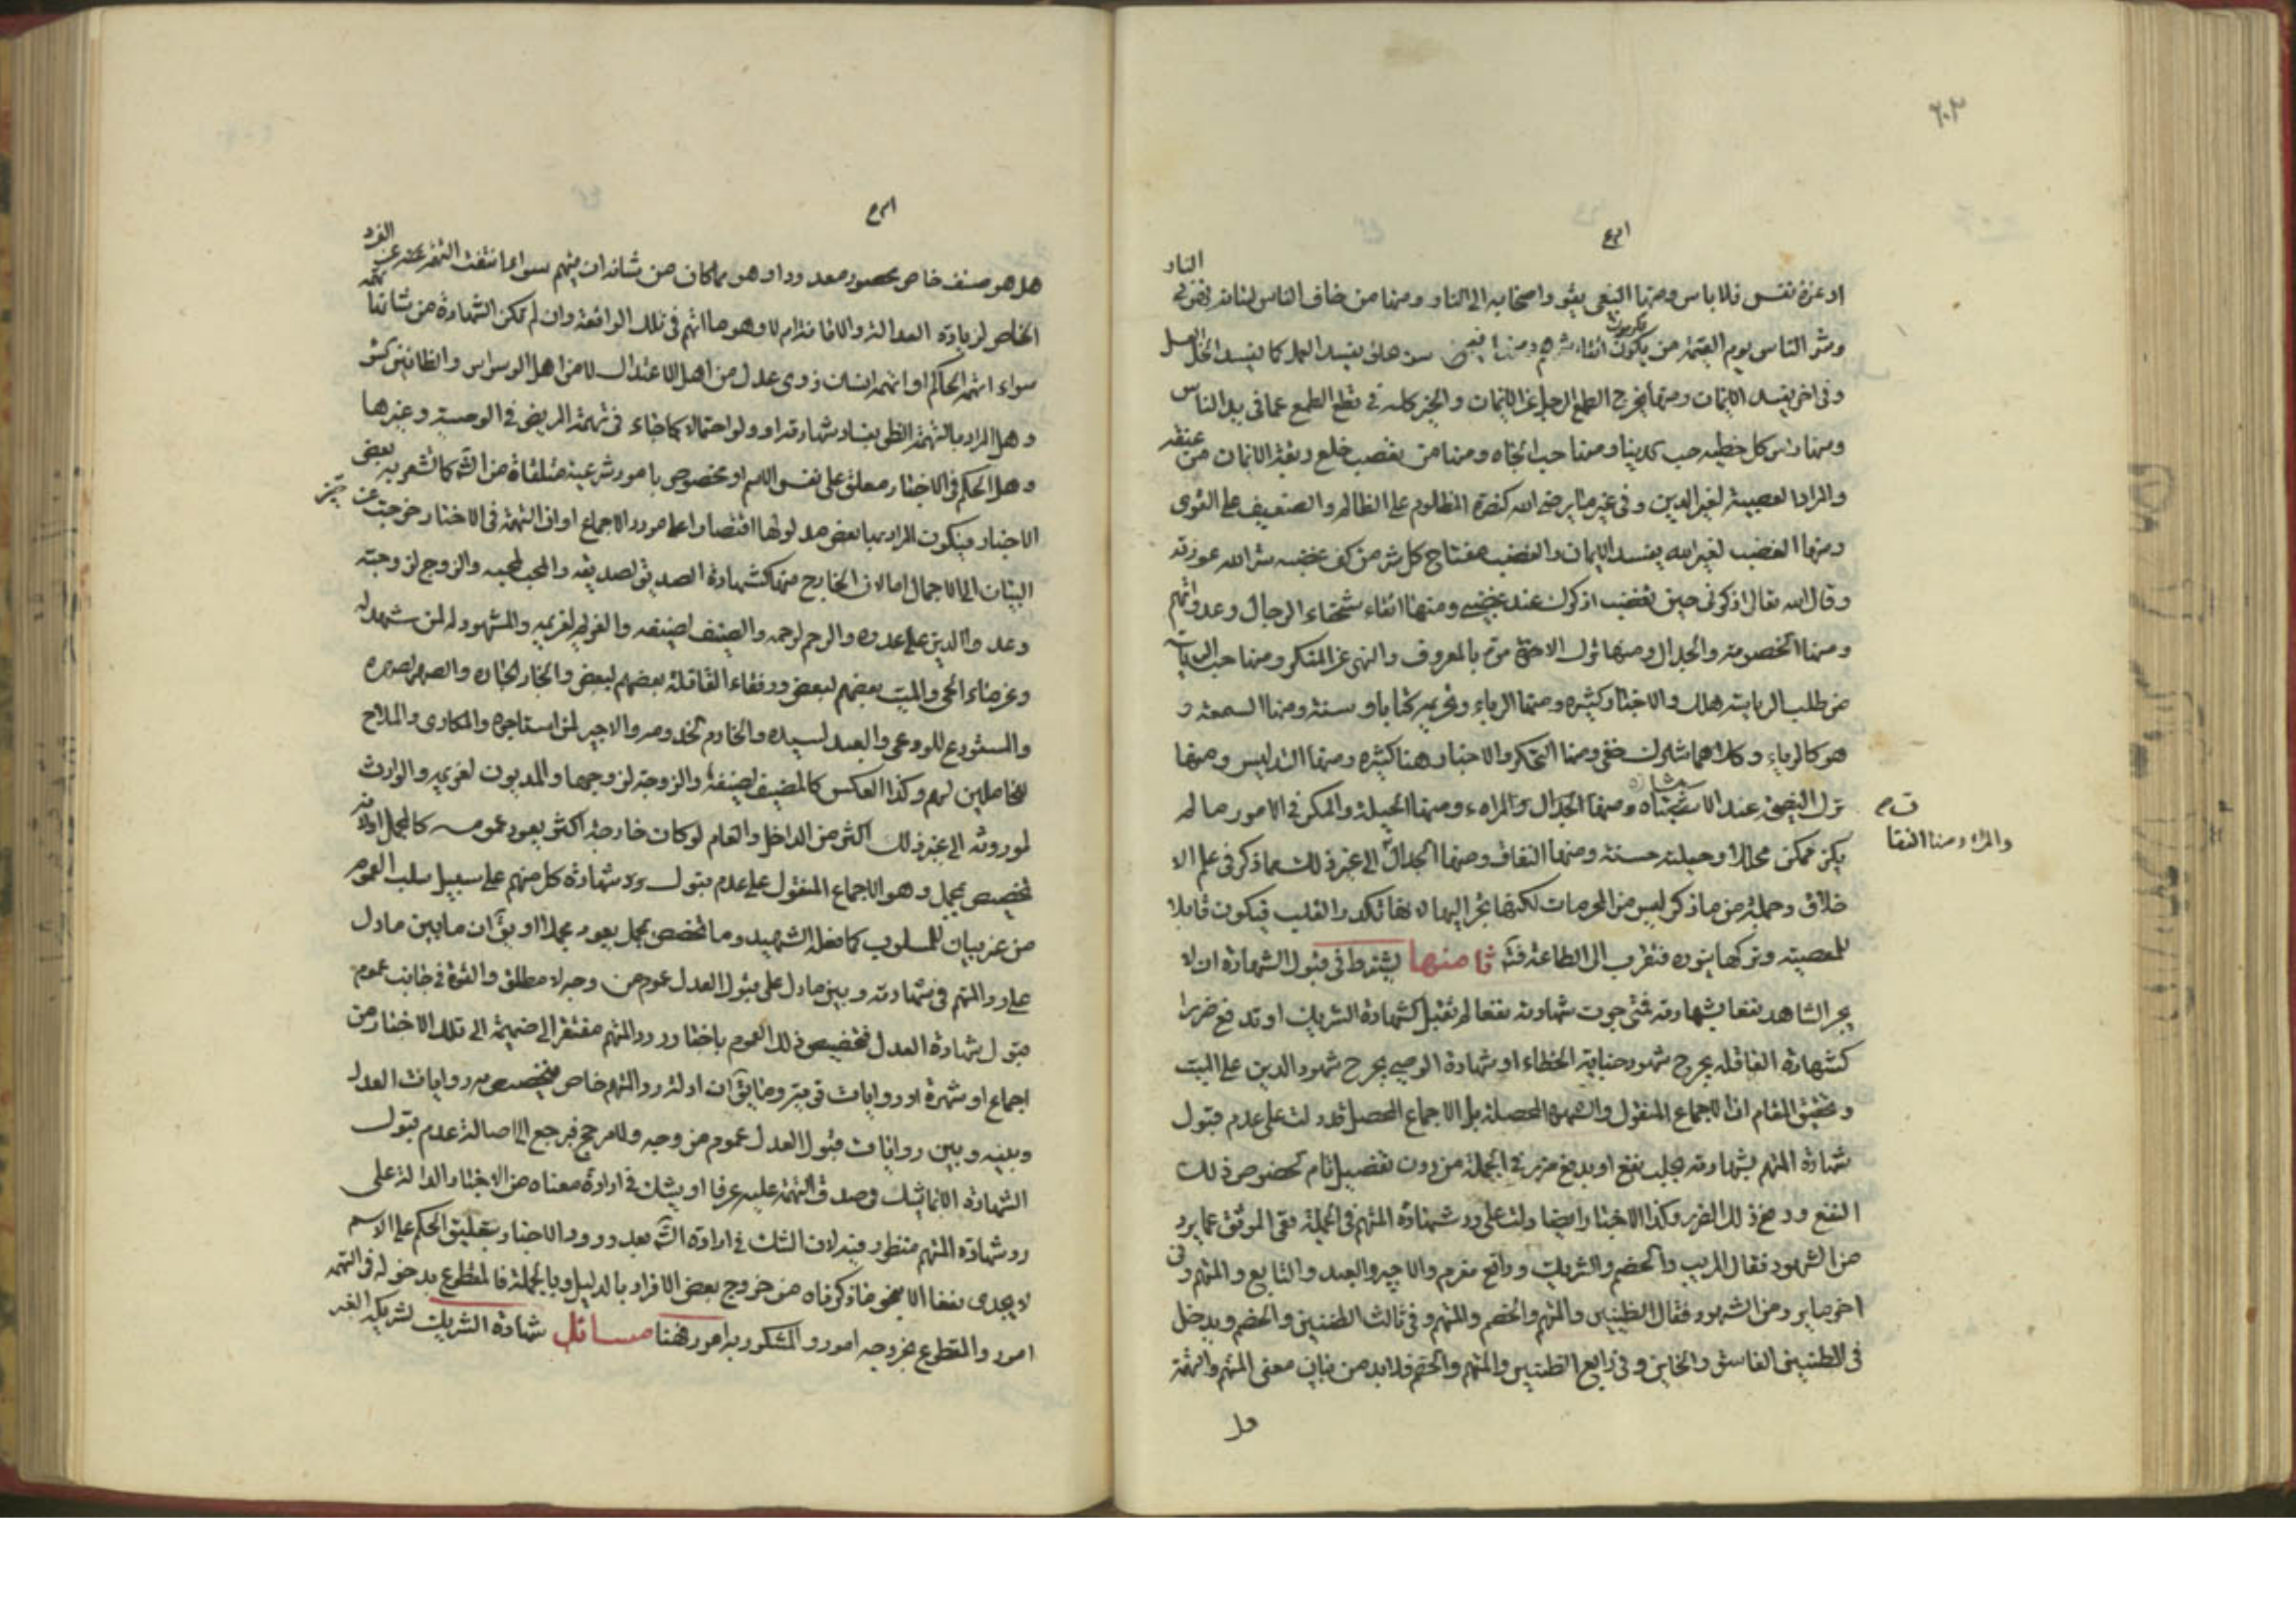 ٦٠٣
او عزة نفس فلا باس ومنها البغي يقود اصحابه الى النار ومنها من خاف الناس لسانه فهو في النار
وشر الناس يوم القيمة من يكون اتقاء شرهم ومنها سوء خلق يفسد العمل كما يفسد الخل العسل
وفي اخر يفسد الايمان ومنها يخرج الطمع الرجل عن الايمان والخير كله في قطع الطمع عما في يد الناس
ومنها راس كل خطيه حب الدينا ومنها حب الجاه ومنها من تعصب خلع ربقة الايمان من عنقه
والمراد العصبية لغير الدين وفي غير ما يرضى الله كنصرة المظلوم على الظالم والضعيف على القوى
ومنها الغضب لغير الله يفسد الايمان والغضب مفتاح كل شر من كف غضبه ستر الله عورته
وقال الله تعالى اذكرني حين تغضب اذكرك عند غضبي ومنها اتقاء شحناء الرجال وعداوتهم
ومنها الخصومة والجدال ومنها ترك الامر بالمعروف والنهي عن المنكر ومنها حب الرياسة
من طلب الرياسة هلك والاخبار كثيره ومنها الرياء وتحريمه كتابا وسنة ومنها السمعة و
هو كالرياء وكلاهما شرك خفي ومنها التكبر والاخبار هنا كثيره ومنها التدليس ومنها
ترك النصيحة عند الاستشاره ومنها الجدال والمراء ومنها الحيلة والمكر في الامور ما لم
والمراء ومنها النفا
يكن ممكن محالا او حيلة حسنة ومنها النفاق ومنها الجدال الى غير ذلك مما ذكر في علم الا
خلاق وجملة من ما ذكر ليس من المحرمات لكنها تجر اليها لانها تكدر القلب فيكون قابلا
للمعصية وتركها ينوره فتقرب الى الطاعة ثامنها يشترط في قبول الشهادة ان لا
يجر الشاهد نفعا بشهادته فمتى جرت شهادته نفعا لم تقبل كشهادة الشريك او تدفع ضررا
كشهادة العاقله بجرح شهود جناية الخطاء او شهادة الوصي بجرح شهود الدين على الميت
وتحقيق المقام ان الاجماع المنقول والشهرة المحصلة بل الاجماع المحصل قد دلت على عدم قبول
شهادة المتهم بشهادته بجلب نفع او بدفع ضرر في الجملة من دون تفصيل تام لخصوص ذلك
النفع ودفع ذلك الضرر وكذا الاخبار ايضا دلت على رد شهادة المتهم في الجملة ففي الموثق عما يرد
من الشهود فقال المريب والخصم والشريك ودافع مغرم والاجير والعبد والتابع والمتهم وفي
اخر ما يرد من الشهود فقال الظنين والمتهم والخصم والمتهم وفي ثالث الظنين والخصم ويدخل
في الظنين الفاسق والخاين وفي رابع الظنين والمتهم والخصم فلا بد من بيان معنى المتهم والتهمة
هل
هل هو صنف خاص محصور معدود او هو مما كان من شانه ان يتهم سواء ما انتفت التهمة عنه عن الفرد
الخاص لزيادة العدالة والامانة ام لا وهو ما اتهم في تلك الواقعة وان لم تكن الشهادة من شانها
سواء اتهمه الحاكم او اتهمه انسان ذوى عدل من اهل الاعتدال لا من اهل الوسواس
وهل المراد بالتهمة الظن بفساد شهادته او ولو احتمالا كما جاء في تهمة المريض في الوصية وغيرها
وهل الحكم في الاخبار معلق على نفس الاسم او مخصوص بامور شرعية متلقاة من الشرع كما تشعر به بعض
الاخبار فيكون المراد بها بعض مدلولها اقتصارا على مورد الاجماع او ان التهمة في الاخبار خرجت عن حيز
البيان الى الاجمال اما لان الخارج منها كشهادة الصديق لصديقه والمحب لمحبه والزوج لزوجته
وعدو الدين على عدوه والرحم لرحمه والضيف لمضيفه والغريم لغريمه والمشهود له لمن شهد له
وغرماء الحي والميت بعضهم لبعض ورفقاء القافلة بعضهم لبعض والجار لجاره والصهر لصهره
والمستودع للودعي والعبد لسيده والخادم لمخدومه والاجير لمن استاجره والمكارى والملاح
للحاملين لهم وكذا العكس كالمضيف لضيفه والزوجة لزوجها والمديون لغريمه والوارث
لمورثه الى غير ذلك اكثر من الداخل والعام لو كان خارجه اكثر يعود عمومه كالمجمل اولانه
تخصيص بمجمل وهو الاجماع المنقول على عدم قبول ورد شهادة كل منهم على سبيل سلب العموم
من غير بيان للمسلوب كما فعله الشهيد وما تخصص بمجمل يعود مجملا او يق ان ما بين ما دل
على رد المتهم في شهادته وبين ما دل على قبول العدل عموم من وجه لا مطلق والقوة في جانب عموم
قبول شهادة العدل فتخصيص ذلك العموم باخبار رد المتهم مفتقر الى ضميمة الى تلك الاخبار من
اجماع او شهرة او روايات قويترو ما يق ان ادلة رد المتهم خاص فيخصص به روايات العدل
وبينه وبين روايات قبول العدل عموم من وجه وللمرجح فيرجع الى اصالة عدم قبول
الشهادة الا انا نشك في صدق التهمة عليه عرفا او يشك في ارادة معناه من الاخبار الدالة على
رد شهادة المتهم منظور فيه لان الشك في ارادة الشرع بعد ورود الاخبار بتعليق الحكم على الاسم
لا يجدى نفعا الا بنحو ما ذكرناه من خروج بعض الافراد بالدليل وبالجملة فالمقطوع بدخوله في التهمة
امور والمقطوع بخروجه امور والمشكور به امور فهنا مسائل شهادة الشريك لشريكه الغير